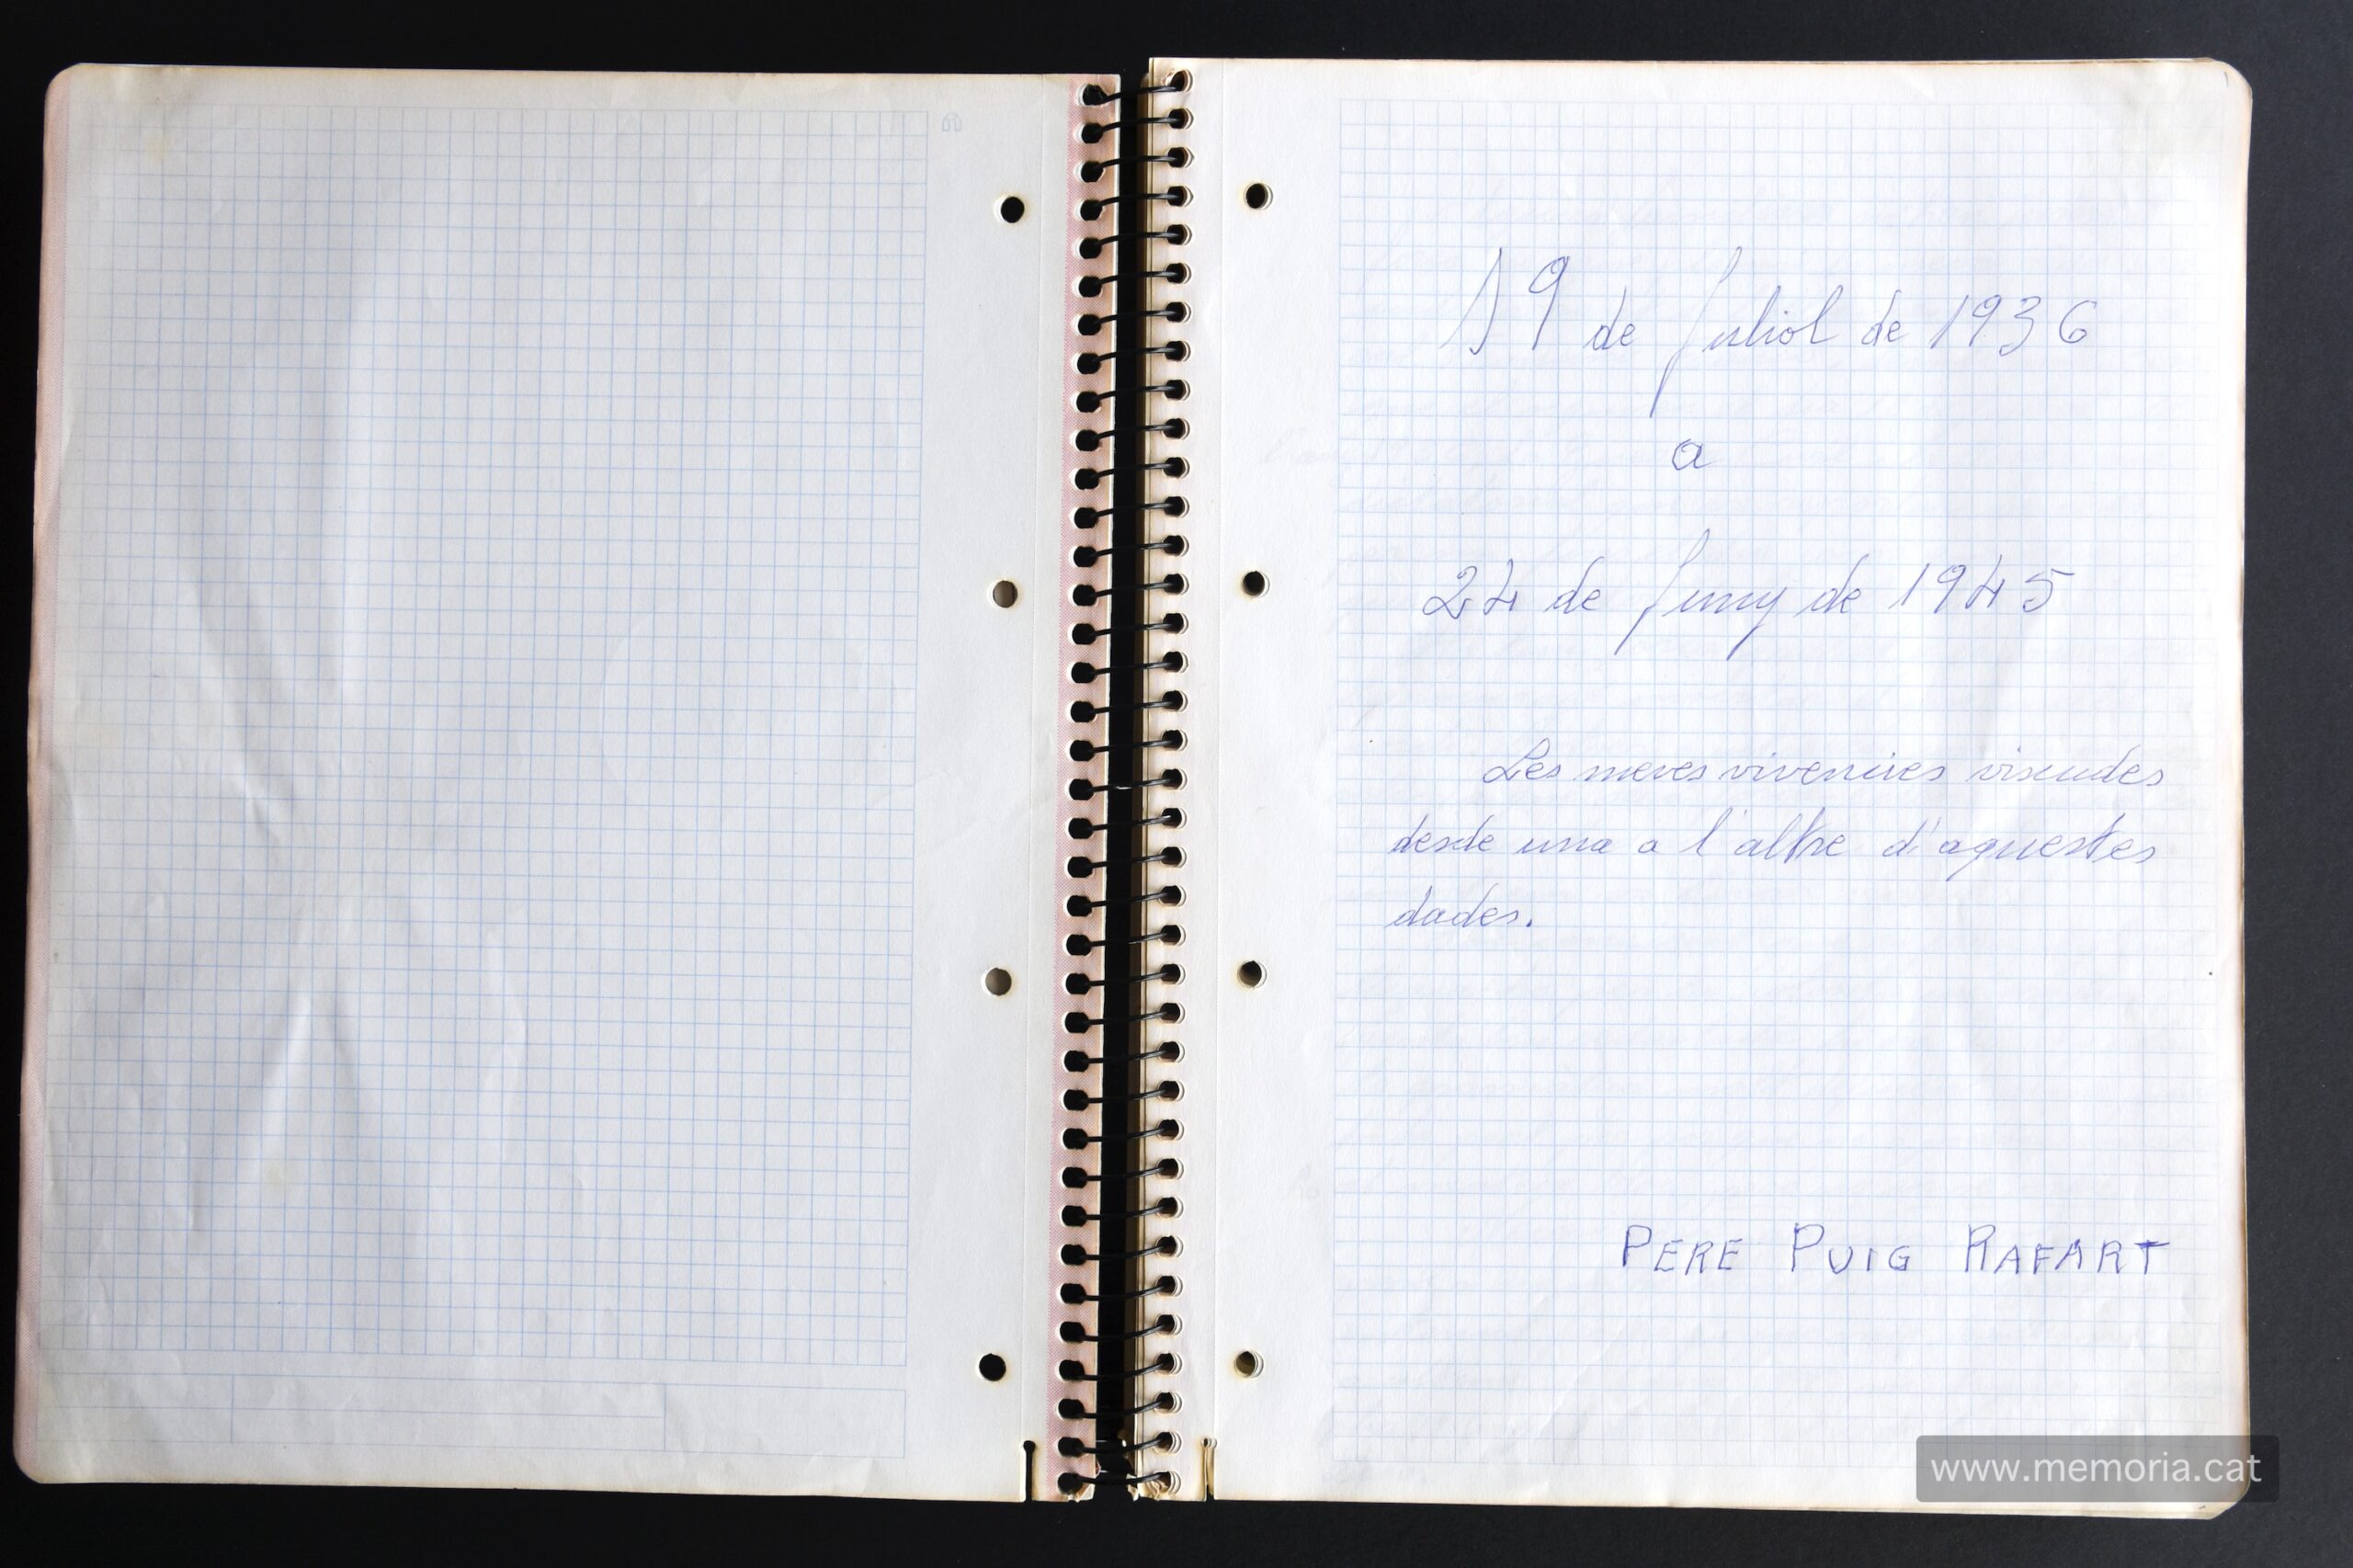 19 de Juliol de 1936
a
24 de Juny de 1945
Les meves vivencies viscudes
desde una a l'altre d'aquestes
dades.
PERE PUIG RAFART
www.memoria.cat